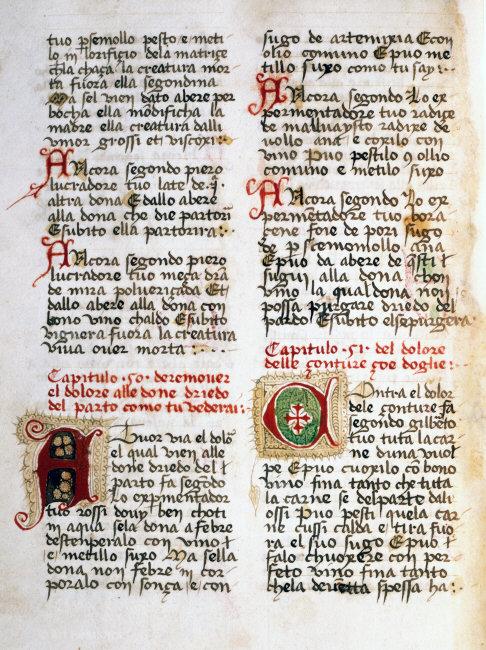 tuo psemollo pesto e meti
lo in lorificio dela matrice
chla chaça la creatura mor
ta fuora ella segondina
Ma sel vien dato abere per
bocha ella modificha la
madre ella creatura dalli
umor grossi et viscoxi:
Ancora segondo piero
lucradore tuo late de .j.
altra dona E dallo abere
alla dona che die partori
E subito ella partorira:
Ancora segondo piero
lucradore tuo meça dra
de mira poluericada Et
dallo abere alla dona con
bono vino chaldo E subito
vignera fuora la creatura
viua ouer morta :
Capitulo .50. de remouer
el dolore alle done driedo
del parto como tu vederai:
A tuor via el dolo
el qual vien alle
done driedo del
parto fa segōdo
Lo expmentador
tuo rossi douy ben choti
in aqua sela dona a febre
destenperalo con vino l
e metillo suxo Ma sella
dona non febre ni cor
poralo con sonça e con
sugo de artemixia E con
olio comuno E puo me
tillo suxo como tu say:
Ancora segondo Lo ex
permentadore tuo radixe
de maluauysto radixe de
uollo ana e coxilo con
vino Puo pestilo 9 ollio
comuno e metilo suxo
Ancora segondo Lo ex
permetadore tuo bora
gene foie de pori sugo
de psemomollo ana
E puo da abere de
sugui alla dona con
vino la qual dona non
possa purgare driedo del
pardo E subito el se purgera
Capitulo .51. del dolore
delle çonture çoe doglie:
Contra el dolor
dele conture fa
segondo gilberto
tuo tuta la car
ne duna uuol
pe E puo cuoxilo cō bono
vino fina tanto che tuta
la carne se delparte dali
ossi Puo pesti quela car
ne cussi calda e tira fuo
ra el suo sugo E puo l
falo chuoxere con per
feto vino fina tanto
chela deuetta spessa ha: